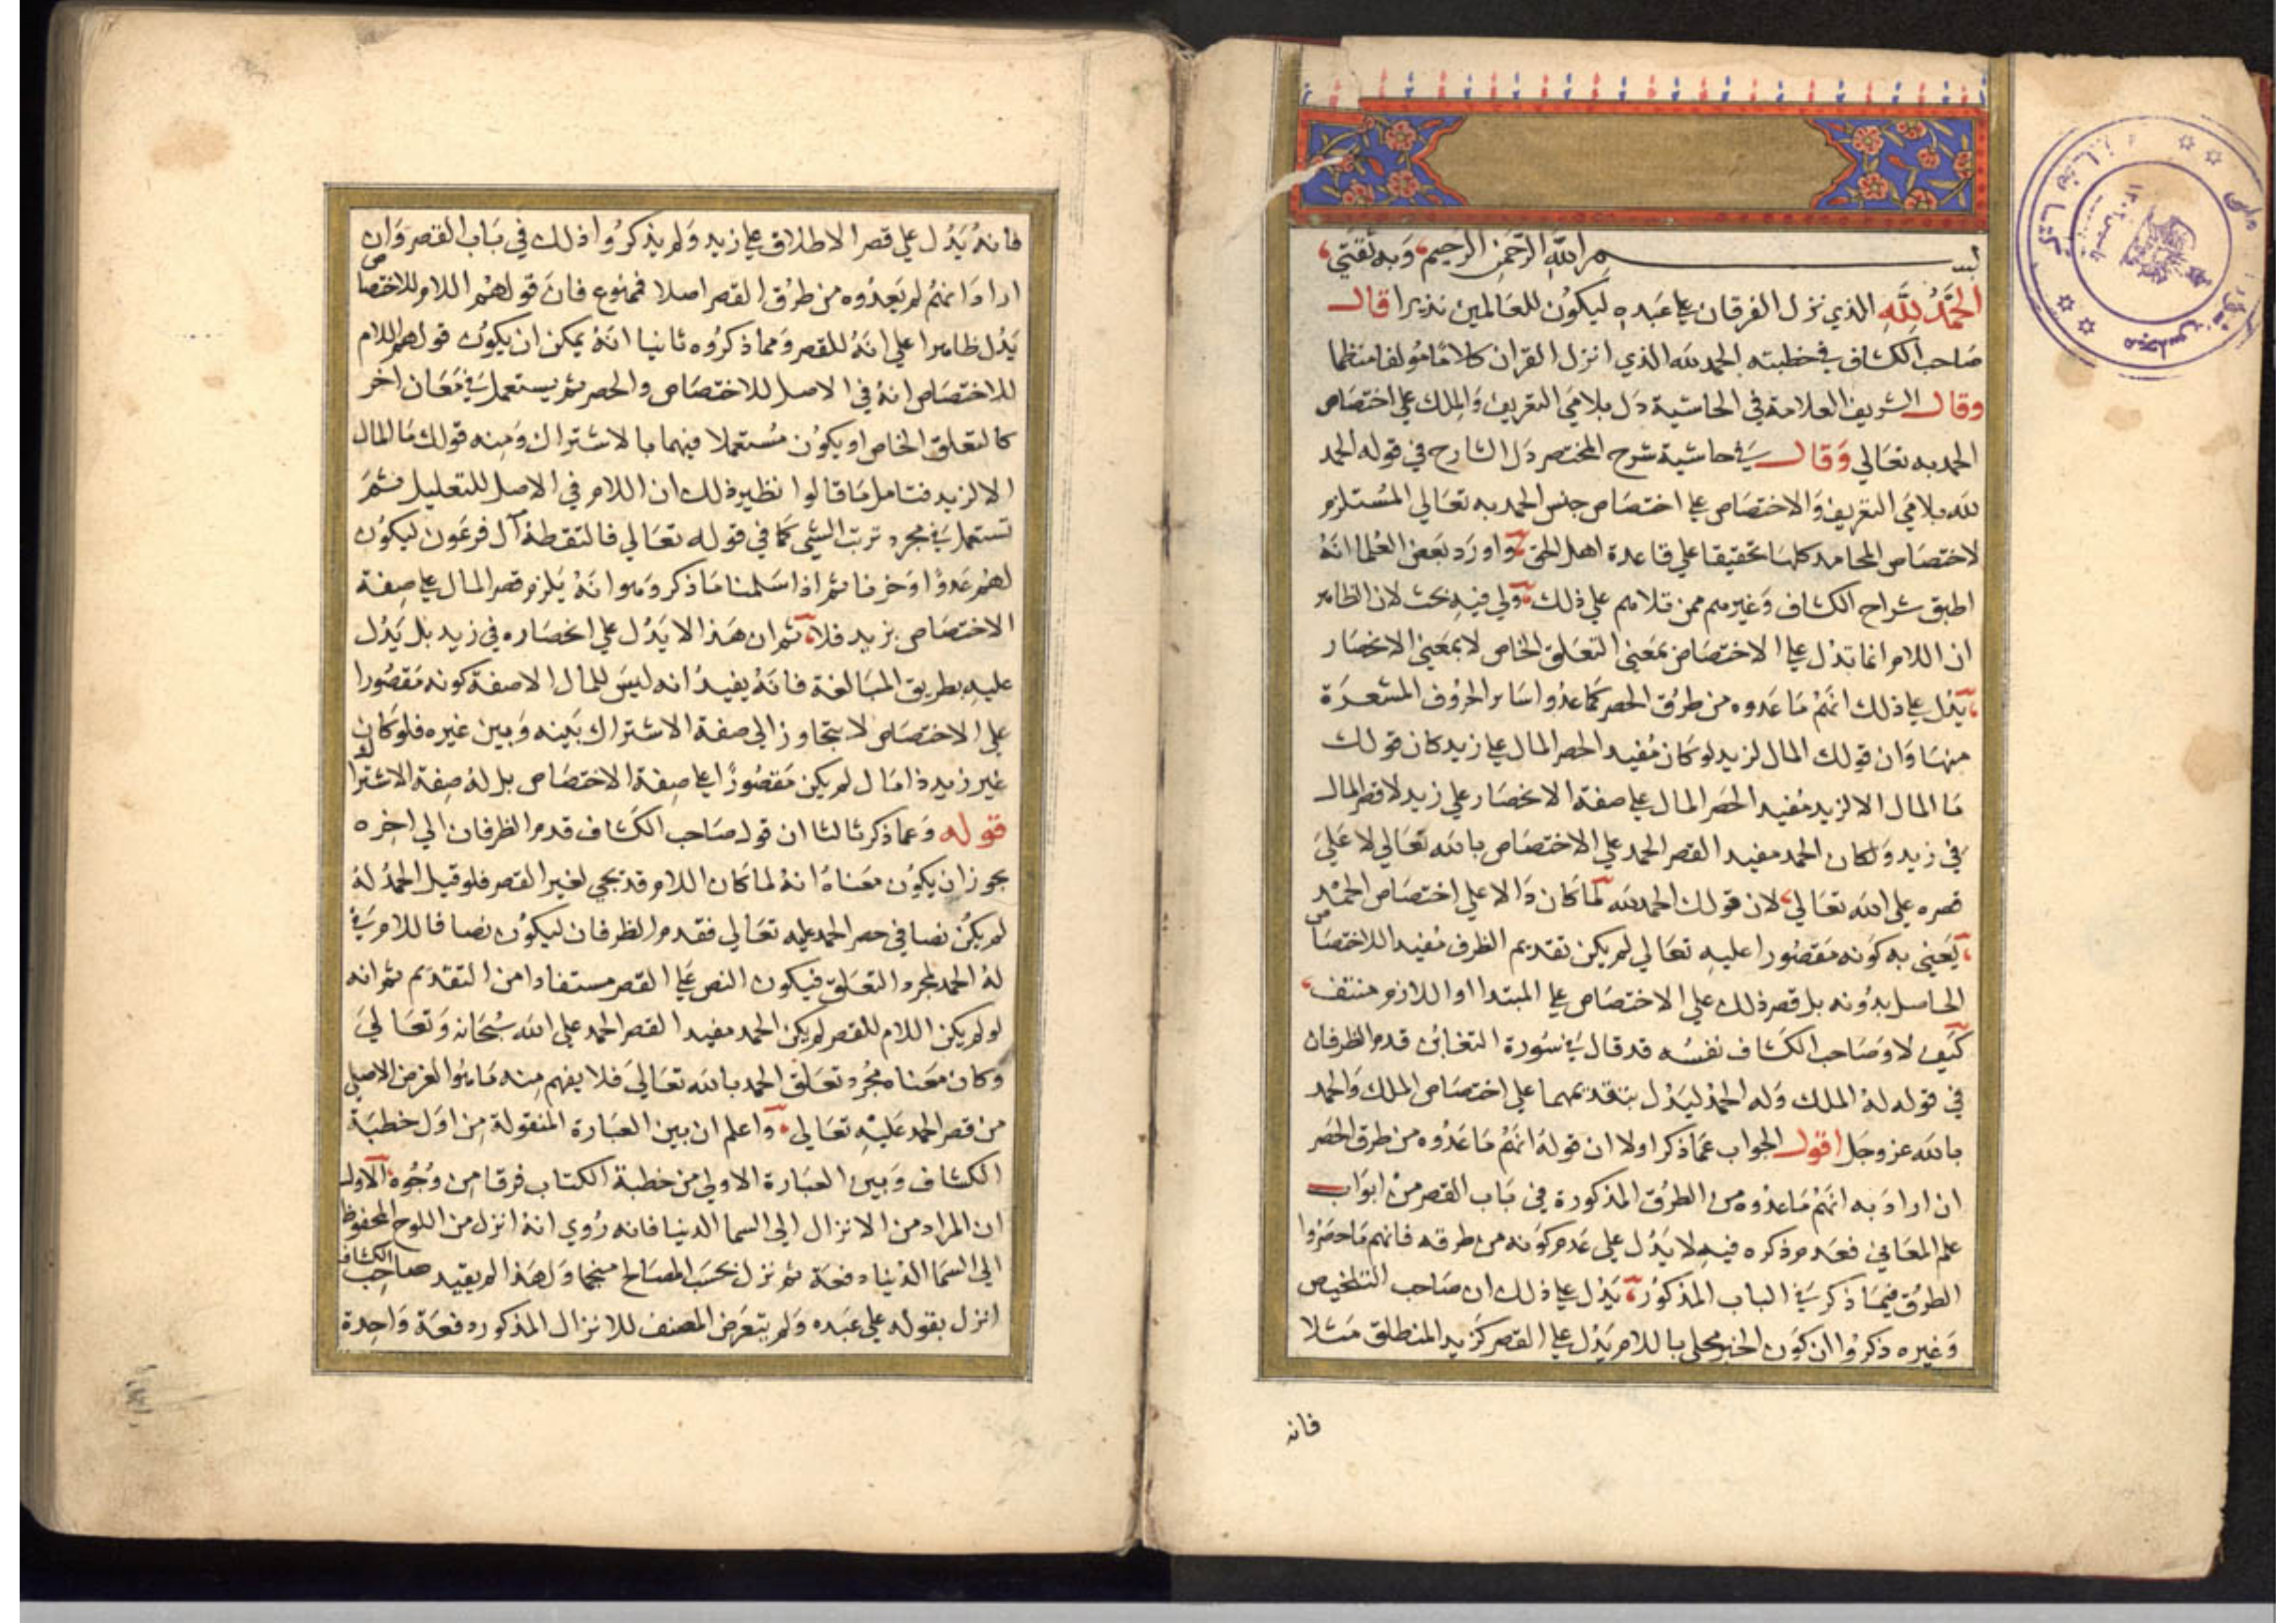 بسم الله الرحمن الرحيم وبه ثقتي
الحمد لله الذي نزل الفرقان على عبده ليكون للعالمين نذيرا قال
صاحب الكشاف في خطبته الحمد لله الذي انزل القران كلاما مولفا منظما
وقال الشريف العلامة في الحاشية دل بلامي التعريف والملك على اختصاص
الحمد به تعالي وقال في حاشية شرح المختصر دل الشارح في قوله الحمد
لله بلامي التعريف والاختصاص على اختصاص جنس الحمد به تعالي المستلزم
لاختصاص المحامد كلها تحقيقا علي قاعدة اهل الحق واورد بعض العلما انه
اطبق شراح الكشاف وغيرهم ممن تلاهم علي ذلك ولي فيه بحث لان الظاهر
ان اللام انما تدل على الاختصاص بمعني التعلق الخاص لا بمعني الانحصار
يدل على ذلك انهم ما عدوه من طرق الحصر كما عدوا ساير الحروف المشعرة
منها وان قولك المال لزيد لو كان مفيد الحصر المال على زيد كان قولك
ما المال الا لزيد مفيد الحصر المال على صفة الانحصار علي زيد لا قصر المال
في زيد ولكان الحمد مفيد القصر الحمد علي الاختصاص بالله تعالي لا علي
قصره علي الله تعالي لان قولك الحمد لله لما كان دالا علي اختصاص الحمد
يعني به كونه مقصورا عليه تعالي لم يكن تقديم الظرف مفيد اللاختصاص
الحاصل بدونه بل قصر ذلك علي الاختصاص علي المبتدا او اللازم منتف
كيف لا وصاحب الكشاف نفسه قد قال في سورة التغابن قدم الظرفان
في قوله له الملك وله الحمد ليدل بتقديمهما علي اختصاص الملك والحمد
بالله عز وجل اقول الجواب عما ذكر اولا ان قوله انهم ما عدوه من طرق الحصر
ان اراد به انهم ما عدوه من الطرق المذكورة في باب القصر من ابواب
علم المعاني فعدم ذكره فيه لا يدل علي عدم كونه من طرقه فانهم ما حصروا
الطرق فيما ذكر في الباب المذكور يدل على ذلك ان صاحب التلخيص
وغيره ذكروا ان كون الخبر محلي باللام يدل على القصر كزيد المنطلق مثلا
فانه
فانه يدل علي قصر الاطلاق على زيد ولم يذكروا ذلك في باب القصر وان
ارادا انهم لم يعدوه من طرق القصر اصلا فممنوع فان قولهم اللام للاختصاص
يدل ظاهرا علي انه للقصر ومما ذكروه ثانيا انه يمكن ان يكون قولهم اللام
للاختصاص انه في الاصل للاختصاص والحصر ثم يستعمل في معان اخر
كالتعلق الخاص او يكون مستعملا فيهما بالاشتراك ومنه قولك ما المال
الا لزيد فتامل ما قالوا نظير ذلك ان اللام في الاصل للتعليل فثم
تستعمل في مجرد ترتب الشي كما في قوله تعالي فالتقطه آل فرعون ليكون
لهم عدوا وحزنا ثم اذا سلمنا ما ذكر وهو انه يلزم قصر المال على صفة
الاختصاص بزيد فلا ثم ان هذا لا يدل علي انحصاره في زيد بل يدل
عليه بطريق المبالغة فانه يفيد انه ليس للمال الا صفة كونه مقصورا
علي الاختصاص لا يتجاوز الي صفة الاشتراك بينه وبين غيره فلو كان
غير زيد ذا مال لم يكن مقصورا على صفة الاختصاص بل له صفة الاشتراك
قوله وعما ذكر ثالثا ان قول صاحب الكشاف قدم الظرفان الي اخره
يجوز ان يكون معناه انه لما كان اللام قد يجي لغير القصر فلو قيل الحمد له
لم يكن نصا في حصر الحمد عليه تعالي فقدم الظرفان ليكون نصا فاللام في
له الحمد لمجرد التعلق فيكون النص على القصر مستفادا من التقديم ثم انه
لو لم يكن اللام للقصر لم يكن الحمد مفيد القصر الحمد علي الله سبحانه وتعالي
وكان معناه مجرد تعلق الحمد بالله تعالي فلا يفهم منه ما هو الغرض الاصلي
من قصر الحمد عليه تعالي واعلم ان بين العبارة المنقولة من اول خطبة
الكشاف وبين العبارة الاولي من خطبة الكتاب فرقا من وجوه الاول
ان المراد من الانزال الي السما الدنيا فانه روي انه انزل من اللوح المحفوظ
الي السما الدنيا دفعة ثم نزل بحسب المصالح منجما ولهذا لم يقيد صاحب الكشاف
انزل بقوله علي عبده ولم يتعرض المصنف للانزال المذكور دفعة واحدة